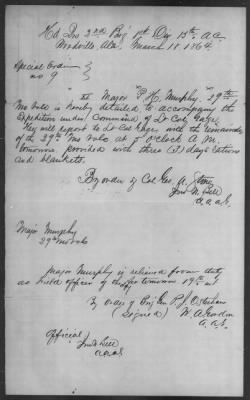 Hd Qrs 2nd Brig 1st Div 15th A.C.
Woodville Ala. March 18 1864
Special Order
No 9
Major P. H. Murphy 29th
Mo Vols is hereby detailed to accompany the
Expedition under Command of Lt Col Gage.
They will report to Lt Col Gage with the remainder
of the 29th Mo Vols at 5 o'clock A.M.
tomorrow provided with three (3) days rations
and blankets.
By order of Col Geo. A. Stone
A.A.A.G.
Major Murphy
29th Mo Vols
Major Murphy is relieved from duty
as field officer of the day tomorrow 19th
By order of Brig Gen P. J. Osterhaus
(Signed) W. A. Gordon
A.A.G.
Official
A.A.A.G.